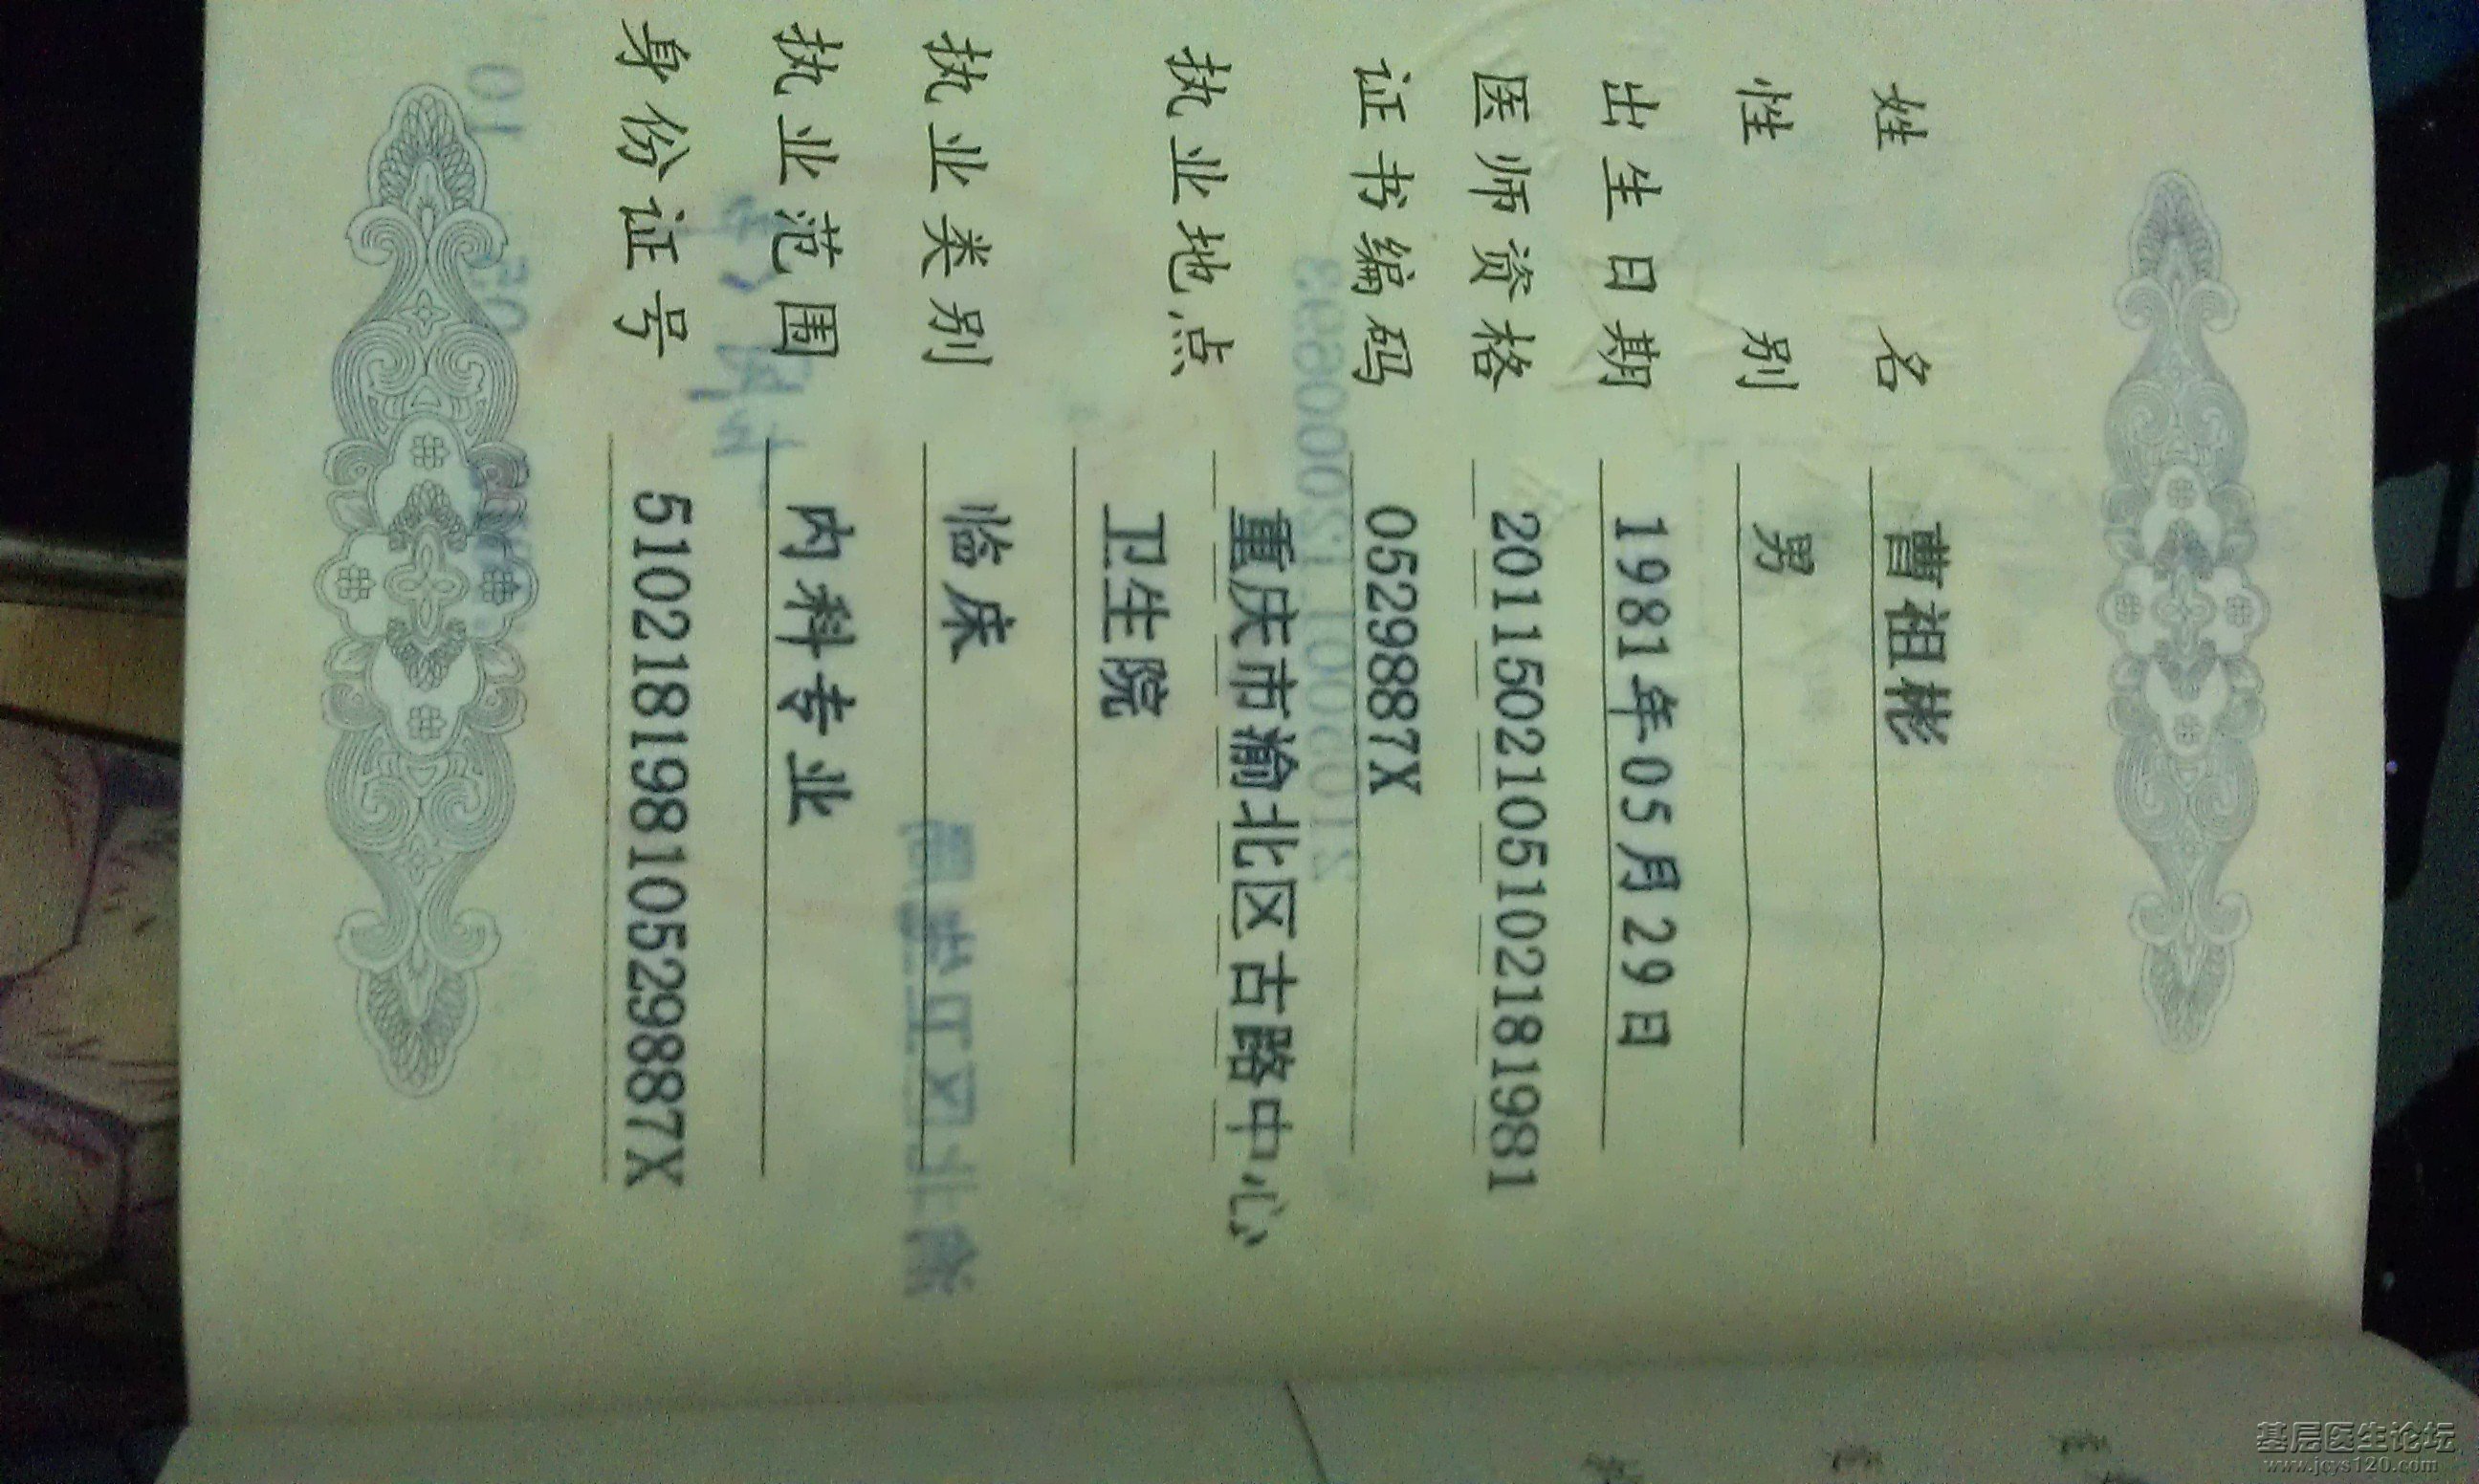 姓 名 曹祖彬
性 别 男
出生日期 1981年05月29日
医师资格 2011502105102181981
证书编码 0529887X
执业地点 重庆市渝北区古路中心
卫生院
执业类别 临床
执业范围 内科专业
身份证号 51021819810529887X
基层医生论坛
www.jcys120.com